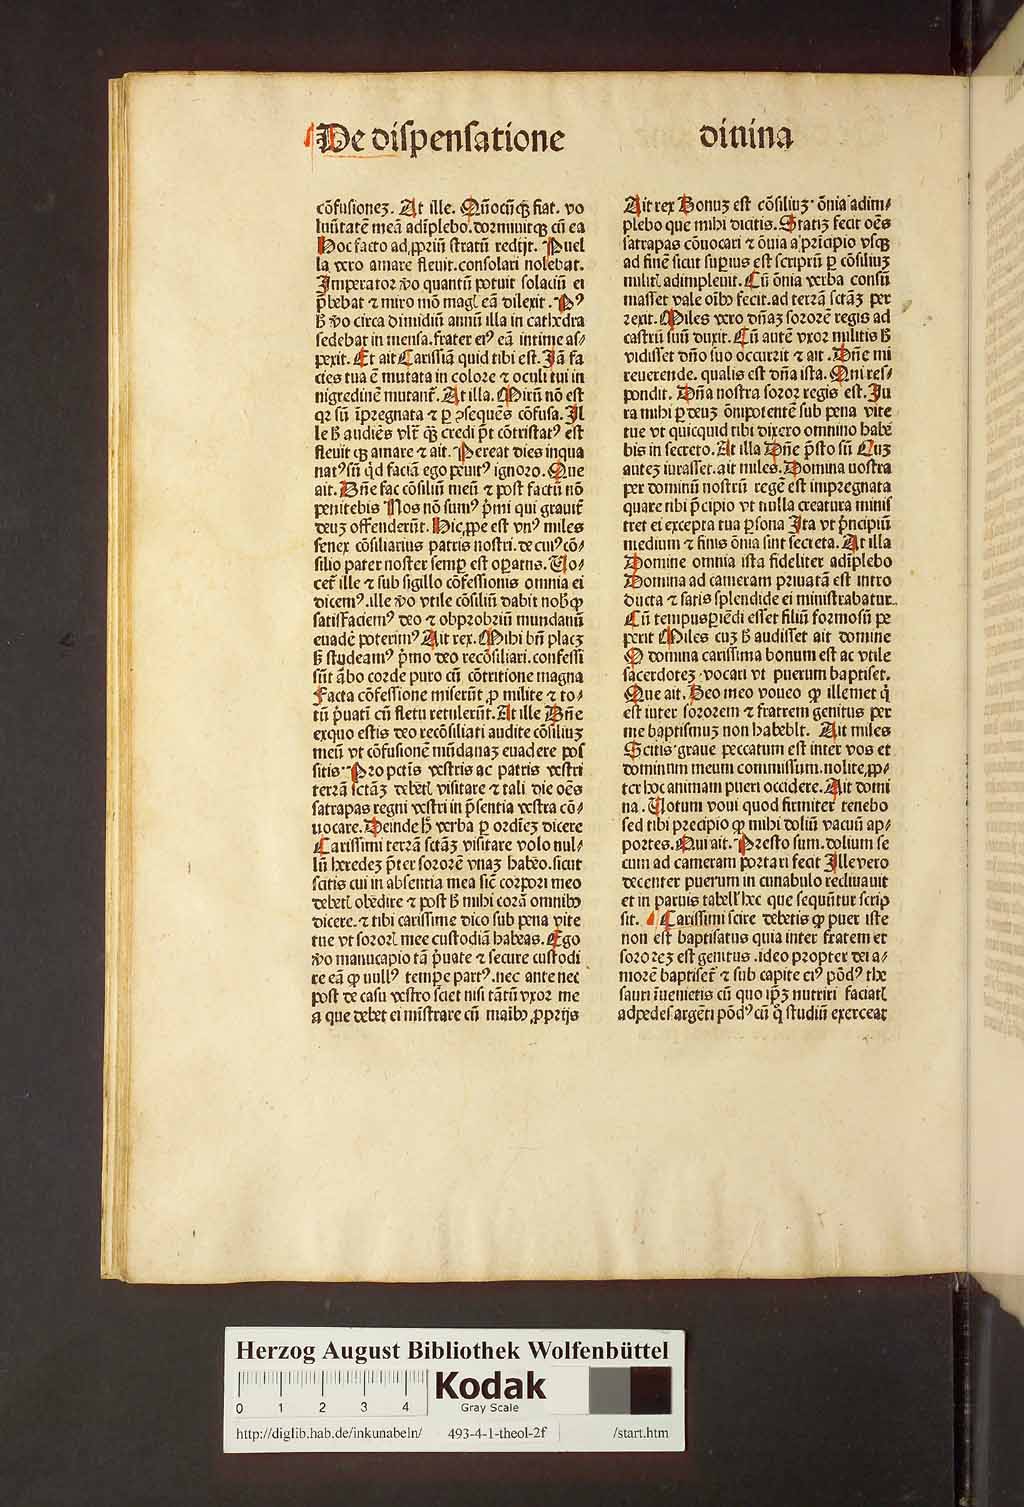 De dispensatione diuina
cōfusionez. At ille. Qñocūqꝫ fiat. vo
lūtatē meā adīplebo. dormiuitqꝫ cū ea
Hoc facto ad ꝓpriū stratū redijt. Puel
la vero amare fleuit. consolari nolebat.
Imperator v̄o quantū potuit solaciū ei
p̄bebat ⁊ miro mō magꝭ eā dilexit. Pꝰ
h̄ v̄o circa dimidiū annū illa in cathedra
sedebat in mensa. frater eiꝰ eā intime as⸗
pexit. Et ait Carissīa quid tibi est. Iā fa
cies tua ē mutata in colore ⁊ oculi tui in
nigredinē mutant̄. At illa. Mirū nō est
qꝛ sū īpregnata ⁊ ꝑ ꝯsequēs cōfusa. Il
le h̄ audiēs vlt̄ qꝫ credi pōt cōtristatꝰ est
fleuit qꝫ amare ⁊ ait. Pereat dies in qua
natꝰ sū qd̄ faciā ego penitꝰ ignoro. Que
ait. Dñe fac cōsiliū meū ⁊ post factū nō
penitebis Nos nō sumꝰ p̄mi qui grauit̄
deuꝫ offenderūt. Hic ꝓpe est vnꝰ miles
senex cōsiliarius patris nostri. de cuiꝰ cō⸗
silio pater noster semꝑ est oꝑatus. Vo⸗
cet̄ ille ⁊ sub sigillo cōfessionis omnia ei
dicemꝰ. ille v̄o vtile cōsiliū dabit nob̄ ꝙ
satisfaciemꝰ deo ⁊ obprobriū mundanū
euadē poterimꝰ Ait rex. Mihi bn̄ placꝫ
h̄ studeamꝰ p̄mo deo recōsiliari. confessi
sūt ābo corde puro cū cōtritione magna
Facta cōfessione miserūt ꝓ milite ⁊ to⸗
tū p̄uatī cū fletu retulerūt. At ille Dñe
exquo estis deo recōsiliati audite cōsiliuꝫ
meū vt cōfusionē mūdanaꝫ euadere pos
sitis. Pro pctīs vestris ac patris vestri
terrā sctāꝫ debetꝭ visitare ⁊ tali die oēs
satrapas regni vestri in p̄sentia vestra cō⸗
uocare. Deinde h̄ verba ꝑ ordīeꝫ dicere
Carissimi terrā sctāꝫ visitare volo nul⸗
lū heredeꝫ p̄ter sororē vnaꝫ habeo. sicut
scitis cui in absentia mea sic̄ corpori meo
debetꝭ obedire ⁊ post h̄ mihi corā omnibꝰ
dicere. ⁊ tibi carissime dico sub pena vite
tue vt sororꝭ mee custodiā habeas. Ego
v̄o manucapio tā p̄uate ⁊ secure custodi
re eā ꝙ nullꝰ tempꝛe partꝰ. nec ante nec
post de casu vestro sciet nisi tātū vxor me
a que debet ei mīstrare cū maībꝰ ꝓprijs
Ait rex Bonuꝫ est cōsiliuꝫ. ōnia adim⸗
plebo que mihi dicitis. Statiꝫ fecit oēs
satrapas cōuocari ⁊ ōnia a prīcipio vsqꝫ
ad finē sicut suꝑius est scriptū ꝑ cōsiliuꝫ
militꝭ adimpleuit. Cū ōnia verba consū
masset vale oībꝰ fecit. ad terrā sctāꝫ per
rexit. Miles vero dñaꝫ sororē regis ad
castrū suū duxit. Cū autē vxor militis h̄
vidisset dño suo occurrit ⁊ ait. Dñe mi
reuerende. qualis est dña ista. Qui res⸗
pondit. Dña nostra soror regis est. Iu
ra mihi ꝑ deuꝫ ōnipotentē sub pena vite
tue vt quicquid tibi dixero omnino habē
bis in secreto. At illa Dñe p̄sto sū Cuꝫ
auteꝫ iurasset. ait miles. Domina nostra
per dominū nostrū regē est impregnata
quare tibi p̄cipio vt nulla creatura minis
tret ei excepta tua ꝑsona Ita vt p̄ncipiū
medium ⁊ finis ōnia sint secreta. At illa
Domine omnia ista fideliter adīplebo
Domina ad cameram priuatā est intro
ducta ⁊ satis splendide ei ministrabatur.
Cū tempus pariēdi esset filiū formosū pe
perit Miles cuꝫ h̄ audisset ait domine
O domina carissima bonum est ac vtile
sacerdoteꝫ vocari vt puerum baptiset.
Que ait. Deo meo voueo ꝙ ille met q̄
est inter sororem ⁊ fratrem genitus per
me baptismuꝫ non habebit. Ait miles
Scitis graue peccatum est inter vos et
dominum meum commissum. nolite ꝓp⸗
ter hoc animam pueri occidere. Ait domi
na. Votum voui quod firmiter tenebo
sed tibi precipio ꝙ mihi doliū vacuū ap⸗
portes. Qui ait. Presto sum. dolium se
cum ad cameram portari fecit Ille vero
decenter puerum in cunabulo recliuauit
et in paruis tabellꝭ hec que sequūtur scrip
sit. Carissimi scire debetis ꝙ puer iste
non est baptisatus quia inter fratem et
sororeꝫ est genitus. ideo propter dei a⸗
morē baptiset̄ ⁊ sub capite eiꝰ pōdꝰ the
sauri īuenietis cū quo ipꝫ nutriri faciatꝭ
ad pedes argēti pōdꝰ cū qͦ studiū exerceat
Herzog August Bibliothek Wolfenbüttel
0 1 2 3 4
Kodak
Gray Scale
http://diglib.hab.de/inkunabeln/ 493-4-1-theol-2f /start.htm